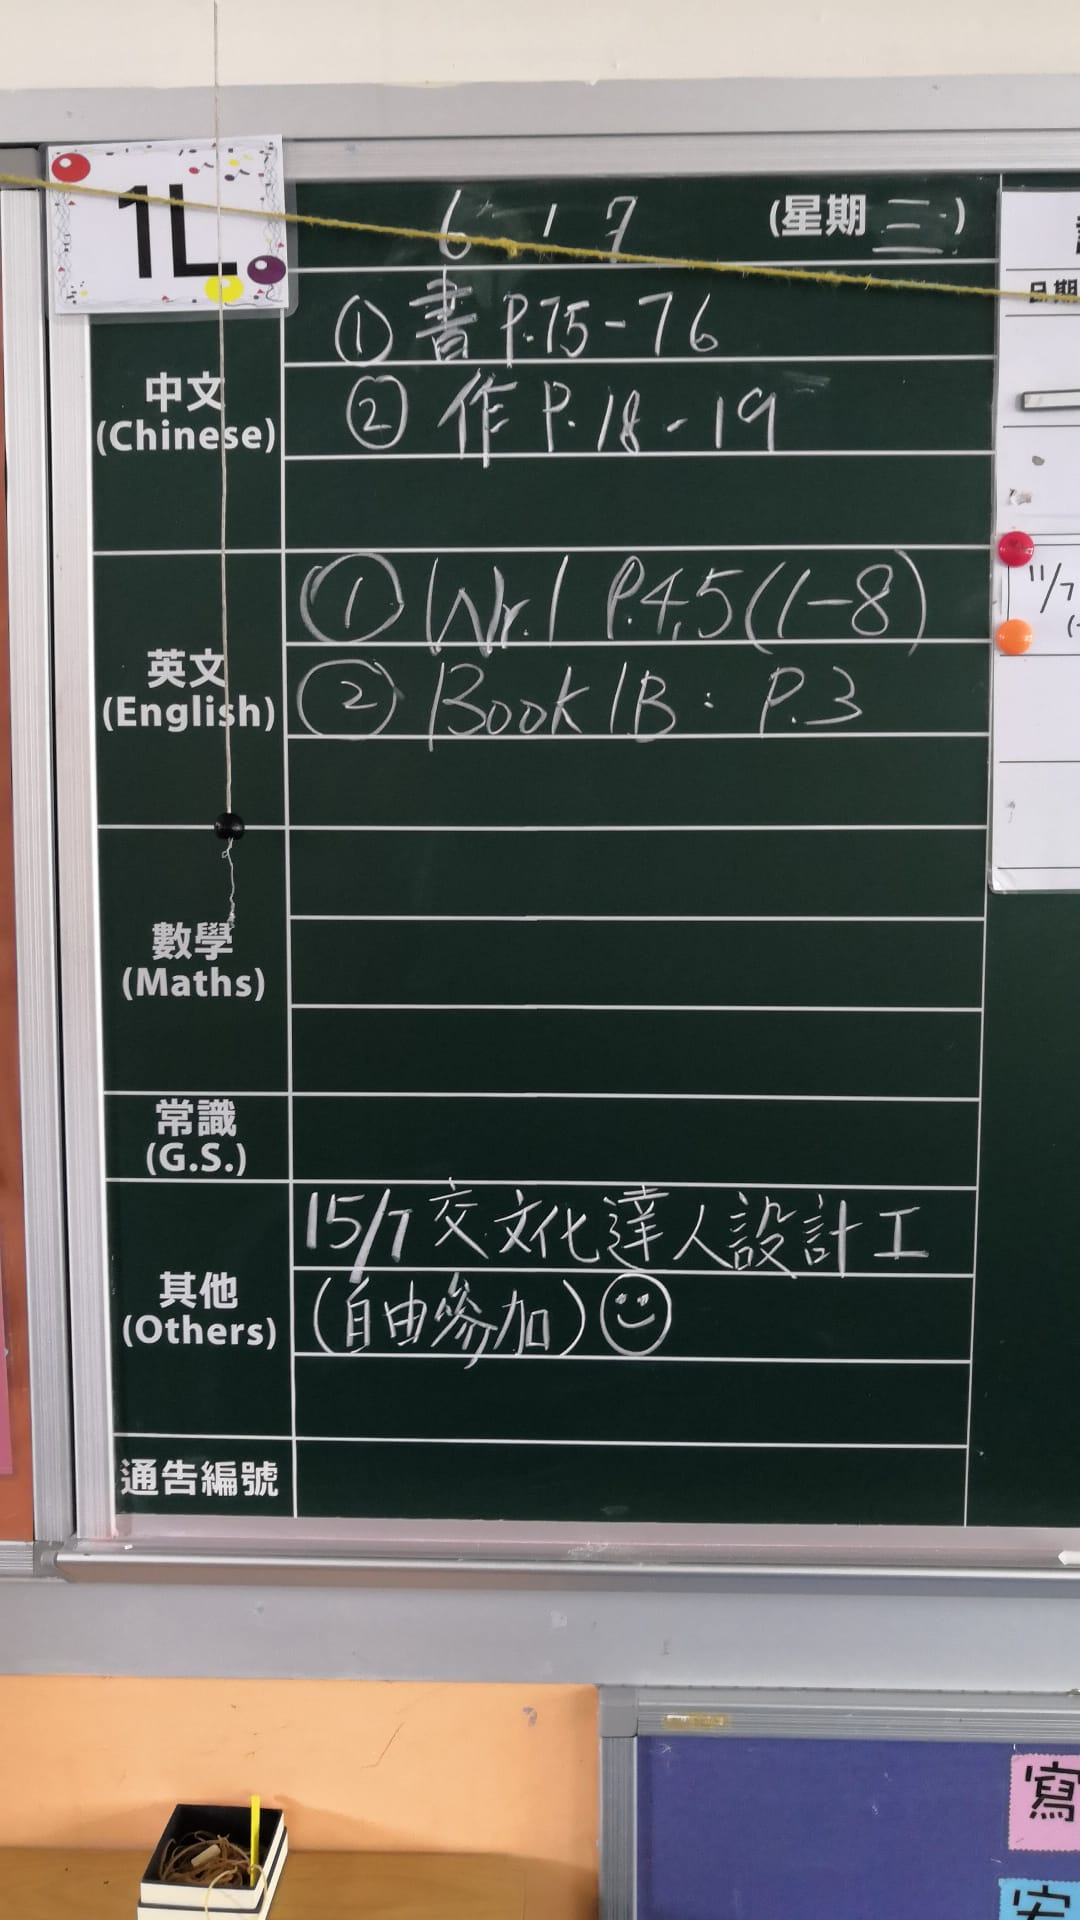 1L
6 1 7 (星期 三)
① 書 P.75-76
中文
(Chinese)
② 作 P.18-19
① Wr.1 P.4,5(1-8)
英文
(English)
② Book 1B: P.3
數學
(Maths)
常識
(G.S.)
15/7 交文化達人設計工
其他
(Others)
(自由參加)
通告編號
日期
11/7
寫